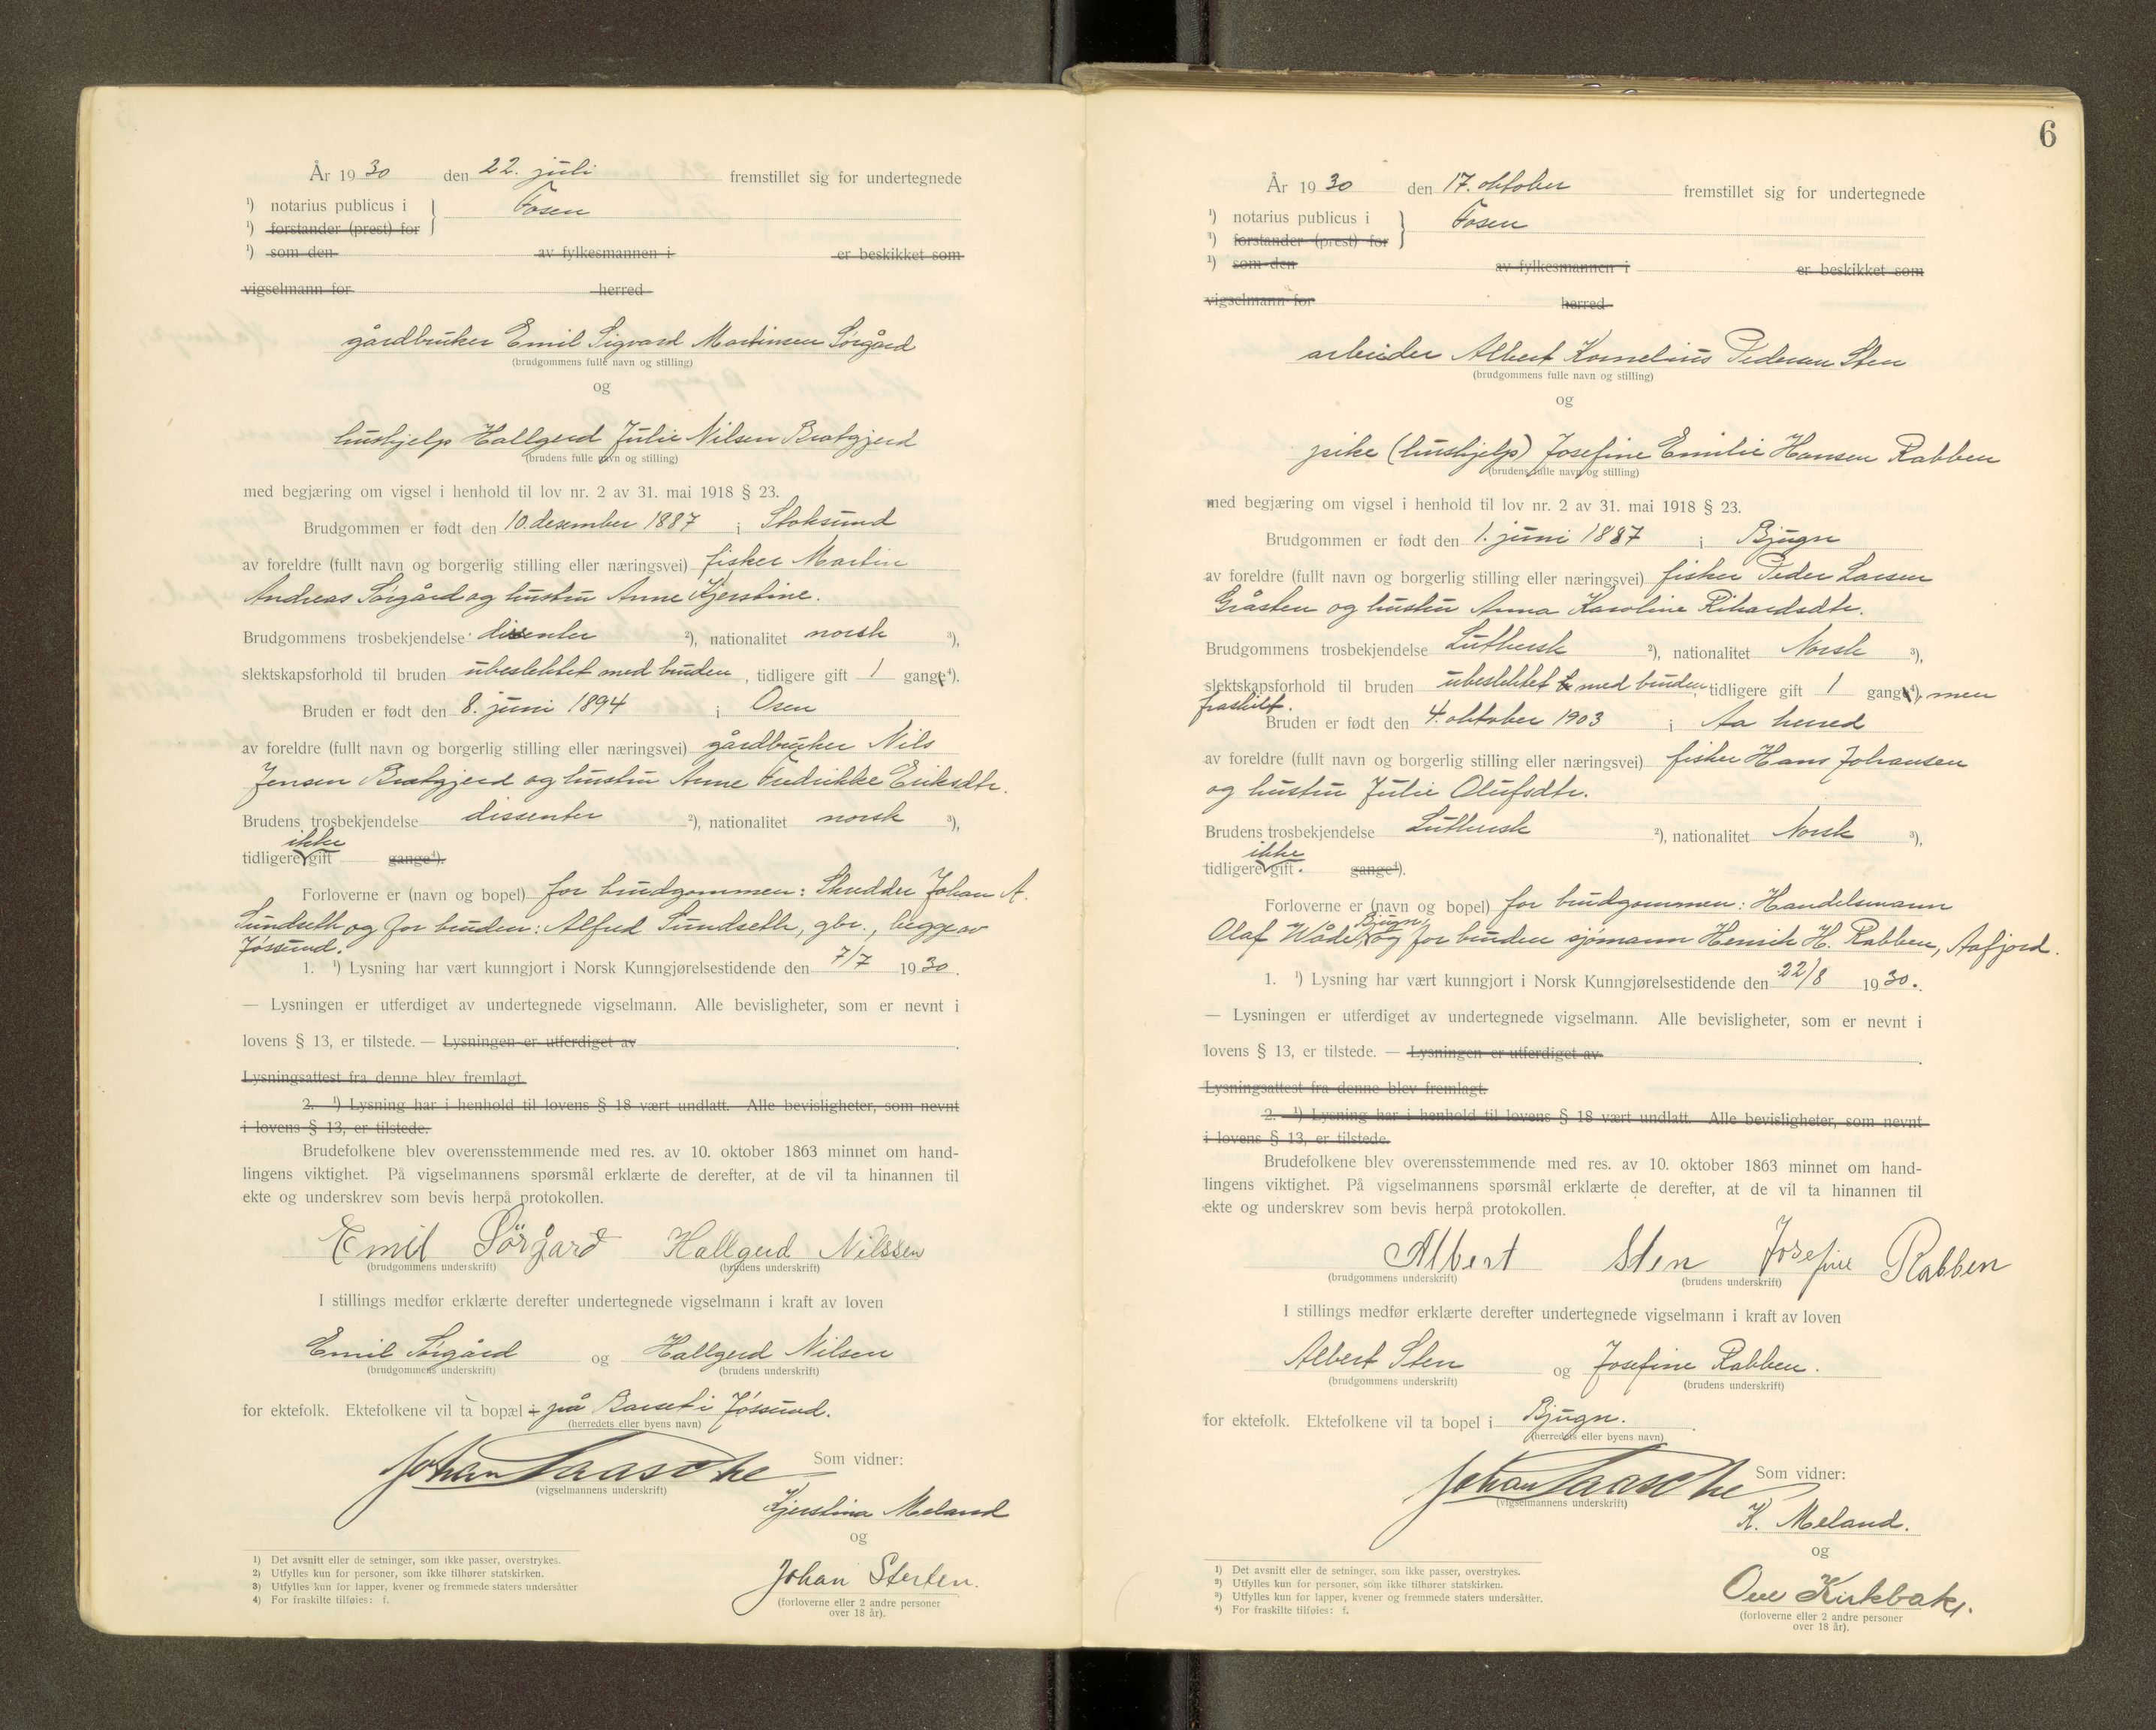 År 1930 den 22. juli fremstillet sig for undertegnede
¹) notarius publicus i Fosen
¹) forstander (prest) for
¹) som den av fylkesmannen i er beskikket som
vigselmann for herred
gårdbruker Emil Sigvard Martinsen Sørgård
(brudgommens fulle navn og stilling)
og
hushjelp Hallgerd Julie Nilsen Bratgjerd
(brudens fulle navn og stilling)
med begjæring om vigsel i henhold til lov nr. 2 av 31. mai 1918 § 23.
Brudgommen er født den 10. desember 1887 i Stoksund
av foreldre (fullt navn og borgerlig stilling eller næringsvei) fisker Martin
Andreas Sørgård og hustru Anne Kjerstine.
Brudgommens trosbekjendelse dissenter ²), nationalitet norsk ³),
slektskapsforhold til bruden ubeslektet med bruden, tidligere gift 1 gang⁴).
Bruden er født den 8. juni 1894 i Osen
av foreldre (fullt navn og borgerlig stilling eller næringsvei) gårdbruker Nils
Jensen Bratgjerd og hustru Anne Fredrikke Eriksdtr.
Brudens trosbekjendelse dissenter ²), nationalitet norsk ³),
ikke
tidligere gift gange⁴).
Forloverne er (navn og bopel) for brudgommen: Skredder Johan A.
Sundseth og for bruden: Alfred Sundseth, gbr., begge av
Jøssund.
1. ¹) Lysning har vært kunngjort i Norsk Kunngjørelsestidende den 7/7 1930.
— Lysningen er utferdiget av undertegnede vigselmann. Alle bevisligheter, som er nevnt i
lovens § 13, er tilstede. — Lysningen er utferdiget av .
Lysningsattest fra denne blev fremlagt.
2. ¹) Lysning har i henhold til lovens § 18 vært undlatt. Alle bevisligheter, som nevnt
i lovens § 13, er tilstede.
Brudefolkene blev overensstemmende med res. av 10. oktober 1863 minnet om hand-
lingens viktighet. På vigselmannens spørsmål erklærte de derefter, at de vil ta hinannen til
ekte og underskrev som bevis herpå protokollen.
Emil Sørgard Hallgerd Nilssen
(brudgommens underskrift) (brudens underskrift)
I stillings medfør erklærte derefter undertegnede vigselmann i kraft av loven
Emil Sørgård og Hallgerd Nilsen
(brudgommens underskrift) (brudens underskrift)
for ektefolk. Ektefolkene vil ta bopæl i på i Jøssund.
(herredets eller byens navn)
Johan Paasche Som vidner:
(vigselmannens underskrift)
Kjerstina Meland
og
Johan Sterten.
(forloverne eller 2 andre personer
over 18 år).
1) Det avsnitt eller de setninger, som ikke passer, overstrykes.
2) Utfylles kun for personer, som ikke tilhører statskirken.
3) Utfylles kun for lapper, kvener og fremmede staters undersåtter
4) For fraskilte tilføies: f.
6
År 1930 den 17. oktober fremstillet sig for undertegnede
¹) notarius publicus i Fosen
¹) forstander (prest) for
¹) som den av fylkesmannen i er beskikket som
vigselmann for herred
arbeider Albert Kornelius Pedersen Sten
(brudgommens fulle navn og stilling)
og
pike (hushjelp) Josefine Emilie Hansen Rabben
(brudens fulle navn og stilling)
med begjæring om vigsel i henhold til lov nr. 2 av 31. mai 1918 § 23.
Brudgommen er født den 1. juni 1887 i Bjugn
av foreldre (fullt navn og borgerlig stilling eller næringsvei) fisker Peder Larsen
Gråsten og hustru Anna Karoline Rikardsdtr.
Brudgommens trosbekjendelse Luthersk ²), nationalitet Norsk ³),
slektskapsforhold til bruden ubeslektet med bruden, tidligere gift 1 gang⁴), men
fraskilt.
Bruden er født den 4. oktober 1903 i Aa herred
av foreldre (fullt navn og borgerlig stilling eller næringsvei) fisker Hans Johansen
og hustru Julie Olufsdtr.
Brudens trosbekjendelse Luthersk ²), nationalitet Norsk ³),
ikke
tidligere gift. gange⁴).
Forloverne er (navn og bopel) for brudgommen: Handelsmann
Bjugn,
Olaf Wåde, og for bruden sjømann Henrik H. Rabben, Aafjord.
1. ¹) Lysning har vært kunngjort i Norsk Kunngjørelsestidende den 22/8 1930.
— Lysningen er utferdiget av undertegnede vigselmann. Alle bevisligheter, som er nevnt i
lovens § 13, er tilstede. — Lysningen er utferdiget av .
Lysningsattest fra denne blev fremlagt.
2. ¹) Lysning har i henhold til lovens § 18 vært undlatt. Alle bevisligheter, som nevnt
i lovens § 13, er tilstede.
Brudefolkene blev overensstemmende med res. av 10. oktober 1863 minnet om hand-
lingens viktighet. På vigselmannens spørsmål erklærte de derefter, at de vil ta hinannen til
ekte og underskrev som bevis herpå protokollen.
Albert Sten Josefine Rabben
(brudgommens underskrift) (brudens underskrift)
I stillings medfør erklærte derefter undertegnede vigselmann i kraft av loven
Albert Sten og Josefine Rabben.
(brudgommens underskrift) (brudens underskrift)
for ektefolk. Ektefolkene vil ta bopel i Bjugn.
(herredets eller byens navn)
Johan Paasche Som vidner:
(vigselmannens underskrift)
K. Meland.
og
Ove Kirkbak.
(forloverne eller 2 andre personer
over 18 år).
¹) Det avsnitt eller de setninger, som ikke passer, overstrykes.
²) Utfylles kun for personer, som ikke tilhører statskirken.
³) Utfylles kun for lapper, kvener og fremmede staters undersåtter.
⁴) For fraskilte tilføies: f.